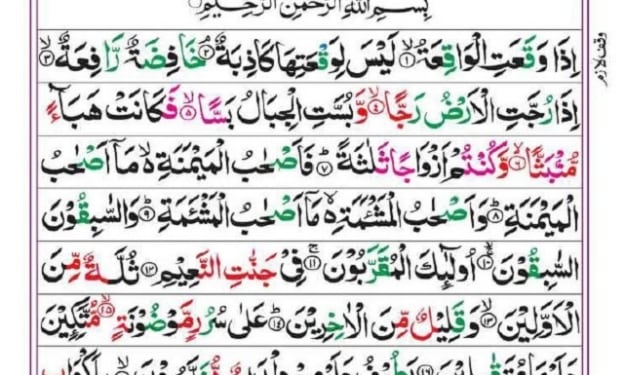 بِسْمِ اللّٰهِ الرَّحْمٰنِ الرَّحِيْمِ
وقف لازم
اِذَا وَقَعَتِ الْوَاقِعَةُ ۙ﴿۱﴾ لَيْسَ لِوَقْعَتِهَا كَاذِبَةٌ ۘ﴿۲﴾ خَافِضَةٌ رَّافِعَةٌ ۙ﴿۳﴾
اِذَا رُجَّتِ الْاَرْضُ رَجًّا ۙ﴿۴﴾ وَّبُسَّتِ الْجِبَالُ بَسًّا ۙ﴿۵﴾ فَكَانَتْ هَبَآءً
مُّنْۢبَثًّا ۙ﴿۶﴾ وَّكُنْتُمْ اَزْوَاجًا ثَلٰثَةً ؕ﴿۷﴾ فَاَصْحٰبُ الْمَيْمَنَةِ ۙ۬ مَاۤ اَصْحٰبُ
الْمَيْمَنَةِ ؕ﴿۸﴾ وَاَصْحٰبُ الْمَشْـَٔمَةِ ۙ۬ مَاۤ اَصْحٰبُ الْمَشْـَٔمَةِ ؕ﴿۹﴾ وَالسّٰبِقُوْنَ
السّٰبِقُوْنَ ۚۙ﴿۱۰﴾ اُولٰٓئِكَ الْمُقَرَّبُوْنَ ۚ﴿۱۱﴾ فِيْ جَنّٰتِ النَّعِيْمِ ﴿۱۲﴾ ثُلَّةٌ مِّنَ
الْاَوَّلِيْنَ ۙ﴿۱۳﴾ وَقَلِيْلٌ مِّنَ الْاٰخِرِيْنَ ؕ﴿۱۴﴾ عَلٰى سُرُرٍ مَّوْضُوْنَةٍ ۙ﴿۱۵﴾ مُّتَّكِـِٕيْنَ